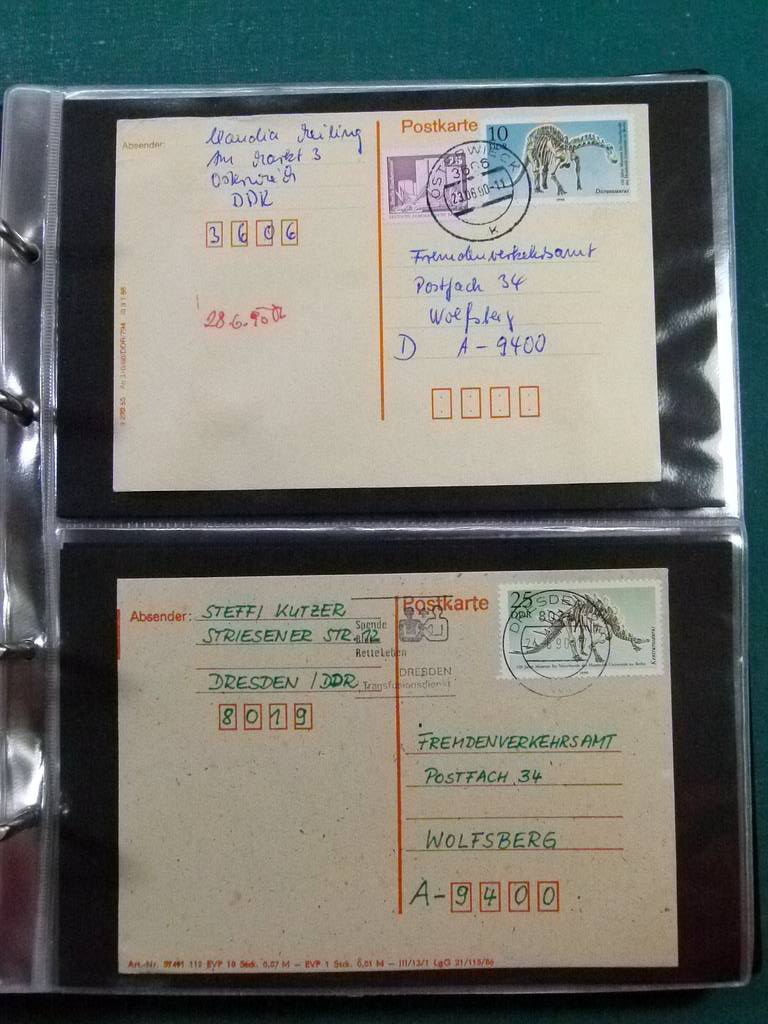 Absender:
Am Markt 3
Osterwieck
DDR
3606
28.6.90
Postkarte
10
DDR
Dicraeosaurus
OSTERWIECK
3606
23.06.90-11
K
Fremdenverkehrsamt
Postfach 34
Wolfsberg
D A-9400
Absender: STEFFI KUTZER
STRIESENER STR. 72
DRESDEN / DDR
8019
Spende
Blut
Rette Leben
DRESDEN
Transfusionsdienst
Postkarte
25
DDR
Kentrurosaurus
DRESDEN
FREMDENVERKEHRSAMT
POSTFACH 34
WOLFSBERG
A-9400
EVP 10 Stck. 0,07 M — EVP 1 Stck. 0,01 M — III/12/1 LgG 21/115/86